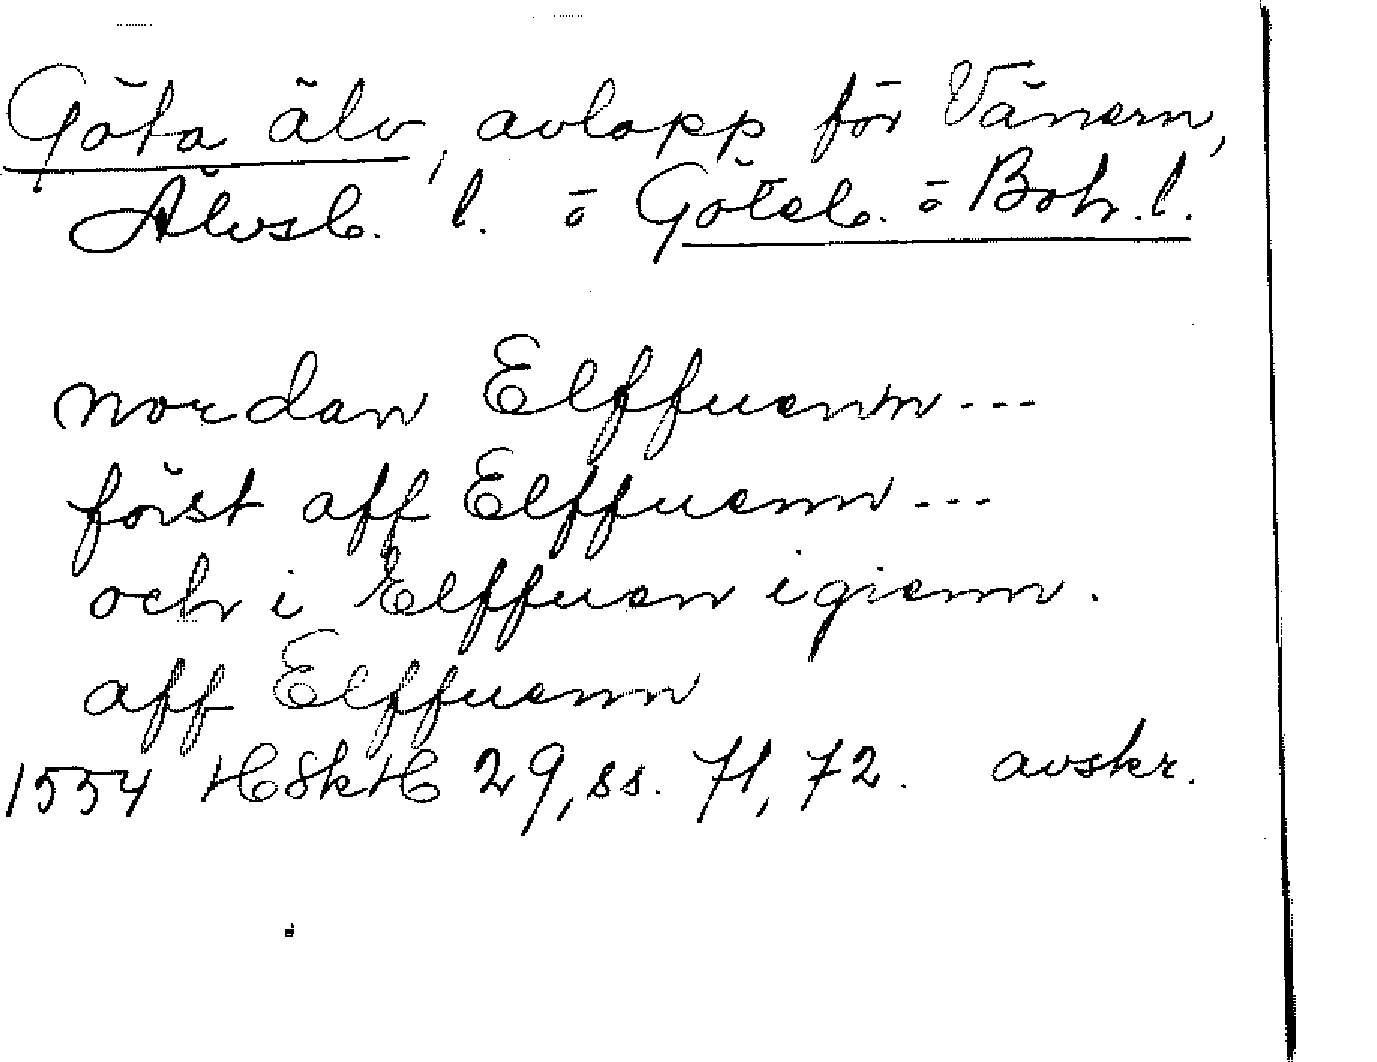 Göta älv, avlopp för Vänern,
Älvsb. l. o Göteb. o Boh. l.
nordan Elffuenn ---
först aff Elffuenn ---
och i Elffuen igienn.
aff Elffuenn
1554 HSkH 29, ss. 71, 72. avskr.